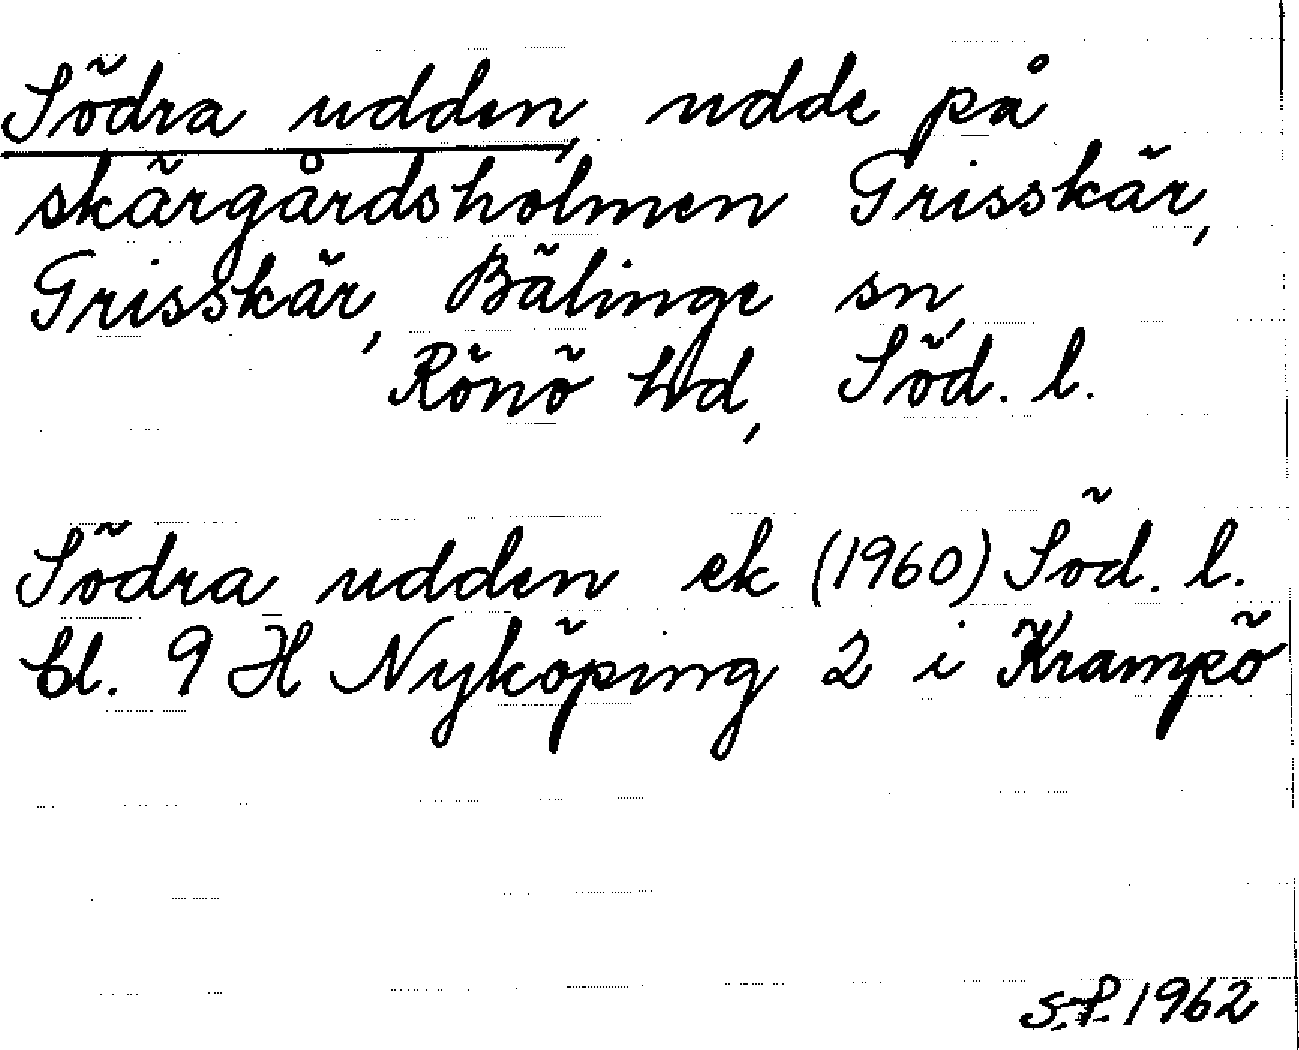 Södra udden, udde på
skärgårdsholmen Grisskär,
Grisskär, Bälinge sn,
Rönö hd, Söd. l.
Södra udden ek (1960) Söd. l.
bl. 9 H Nyköping 2 i Krampö
S.P. 1962